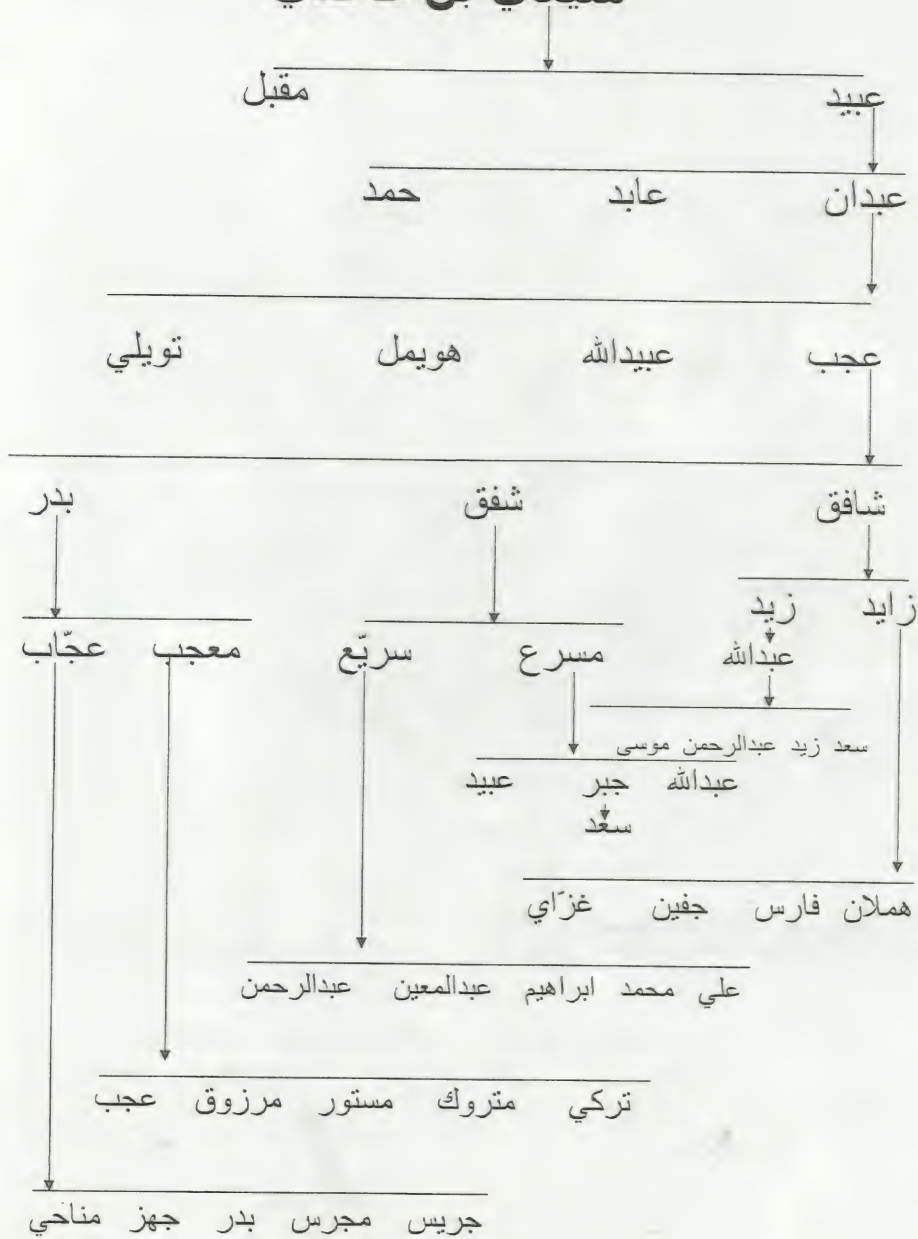 عبيد مقبل
عبدان عابد حمد
عجب عبيدالله هويمل تويلي
شافق شفق بدر
زايد زيد
معجب عجّاب
مسرع سريّع
عبدالله
سعد زيد عبدالرحمن موسى
عبدالله جبر عبيد
سعد
هملان فارس جفين غزّاي
علي محمد ابراهيم عبدالمعين عبدالرحمن
تركي متروك مستور مرزوق عجب
جريس مجرس بدر جهز مناحي